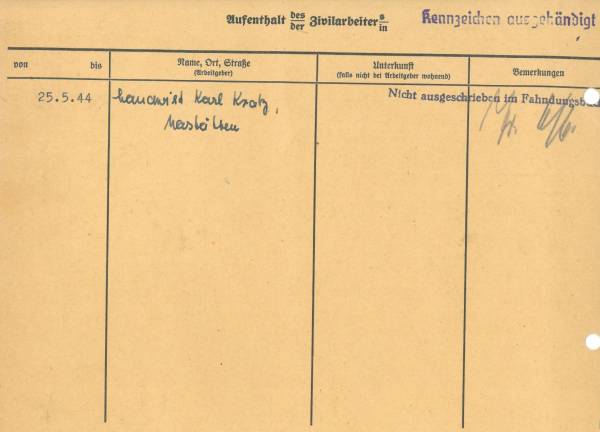 Aufenthalt des/der Zivilarbeiters/in
Kennzeichen ausgehändigt
von bis
Name, Ort, Straße
(Arbeitgeber)
Unterkunft
(falls nicht bei Arbeitgeber wohnend)
Bemerkungen
25.5.44
Landwirt Karl Kratz,
Nastätten
Nicht ausgeschrieben im Fahndungsbuch